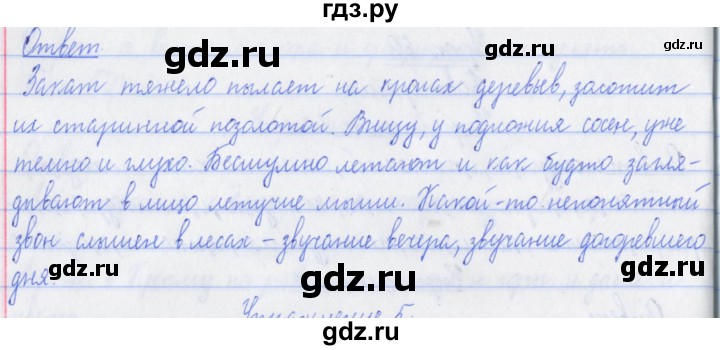 гдз.ру
Ответ
Закат тяжело пылает на кронах деревьев, золотит
их старинной позолотой. Внизу, у подножия сосен, уже
темно и глухо. Бесшумно летают и как будто загля-
дывают в лицо летучие мыши. Какой-то непонятный
звон слышен в лесах – звучание вечера, звучание догоревшего
дня.
Упражнение 5.
gdz.ru
gdz.ru
gdz.ru
gdz.ru
gdz.ru
gdz.ru
gdz.ru
gdz.ru
gdz.ru
gdz.ru
gdz.ru